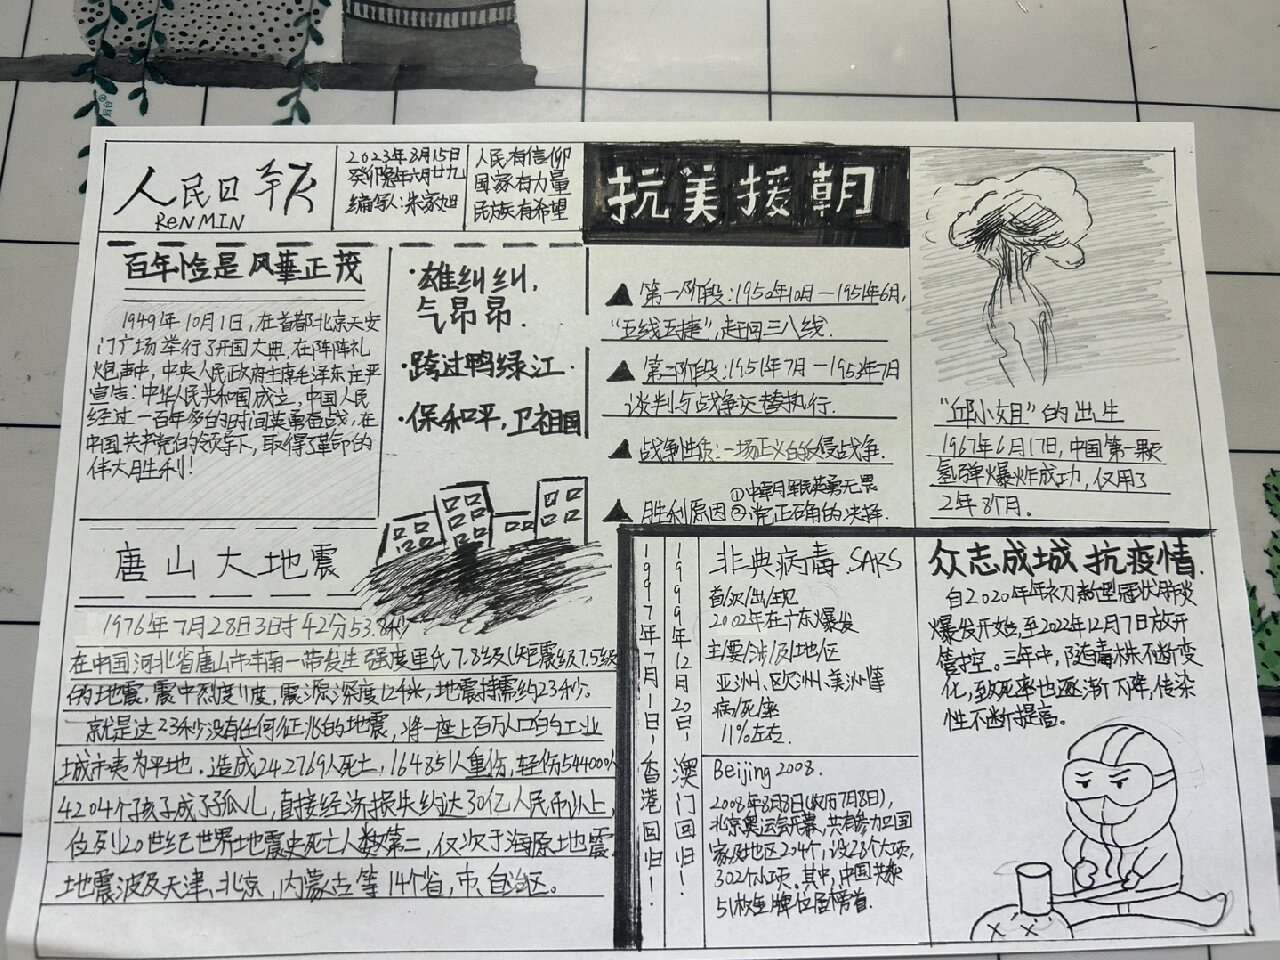 人民日报
RENMIN
2023年8月15日
癸卯兔年六月廿九
编写人：朱
人民有信仰
国家有力量
民族有希望
抗美援朝
百年恰是风華正茂
1949年10月1日，在首都北京天安
门广场举行了开国大典，在阵阵礼
炮声中，中央人民政府主席毛泽东庄严
宣告：中华人民共和国成立，中国人民
经过一百年多的时间英勇奋战，在
中国共产党的领导下，取得了革命的
伟大胜利！
·雄纠纠，
气昂昂．
·跨过鸭绿江．
·保和平，卫祖国
▲第一阶段：1950年10月—1951年6月，
“五线五捷”，赶回三八线．
▲第二阶段：1951年7月—1953年7月
谈判与战争交替执行．
▲战争性质：一场正义的反侵战争．
▲胜利原因①中朝军民英勇无畏
②党正确的决择．
“邱小姐”的出生
1967年6月17日，中国第一颗
氢弹爆炸成功，仅用了
2年8个月．
唐山大地震
1976年7月28日3时42分53.8秒
在中国河北省唐山市丰南一带发生强度里氏7.8级(矩震级7.5级)
的地震，震中烈度11度，震源深度12千米，地震持需约23秒。
就是这23秒没有任何征兆的地震，将一座上百万人口的工业
城市夷为平地．造成242769人死亡，164851人重伤，轻伤544000人
4204个孩子成了孤儿，直接经济损失约达30亿人民币以上，
位列20世纪世界地震史死亡人数第二，仅次于海原地震
地震波及天津、北京，内蒙古等14个省，市、自治区。
1997年7月1日－香港回归！
1999年12月20日－澳门回归！
非典病毒．SARS
首次出现
2002年在广东爆发
主要涉及地区
亚洲、欧洲、美洲等
病死率
11%左右．
Beijing 2008．
2008年8月8日(农历7月8日)，
北京奥运会开幕，共有参加国
家及地区204个，设28个大项，
302个小项．其中，中国共获
51枚金牌位居榜首．
众志成城 抗疫情．
自2020年年初新型冠状肺炎
爆发开始，至2022年12月7日放开
管控。三年中，随毒株不断变
化，致死率也逐渐下降，传染
性不断提高。